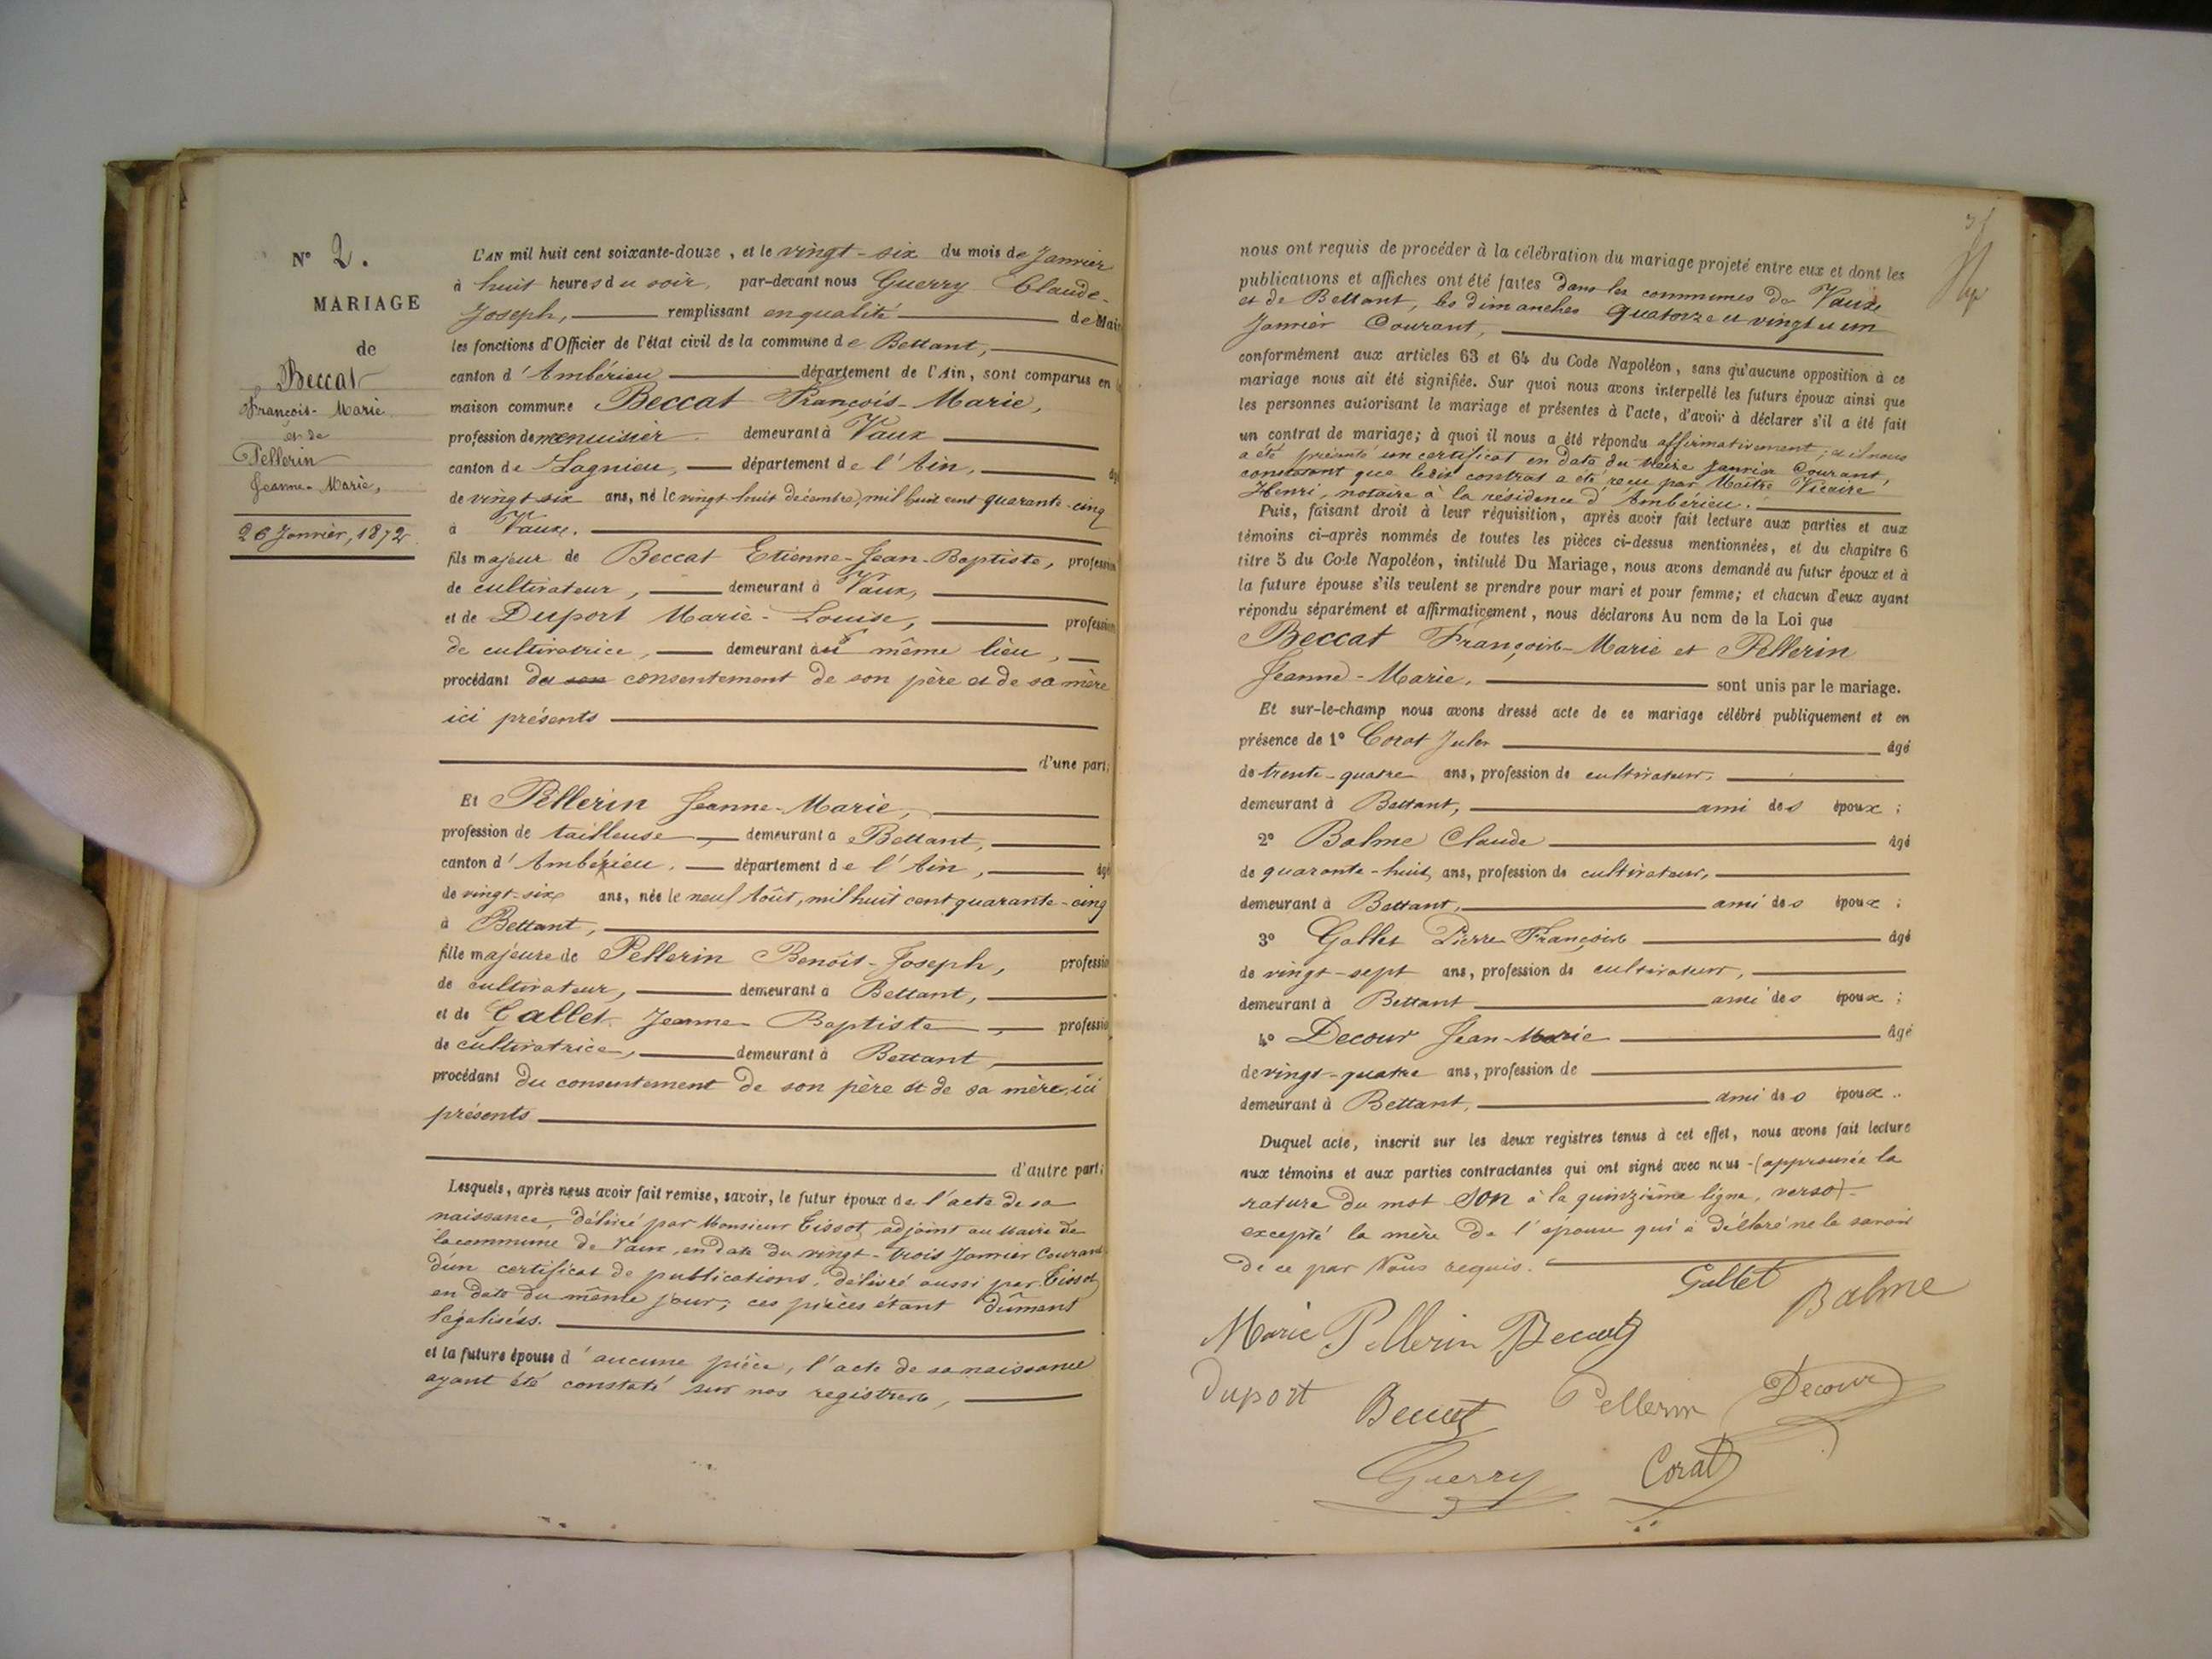 N° 2.
MARIAGE
de
Beccat
François-Marie
et de
Pellerin
Jeanne-Marie,
26 Janvier, 1872.
L'AN mil huit cent soixante-douze, et le vingt-six du mois de Janvier
à huit heures du soir, par-devant nous Guerry Claude-
Joseph, remplissant en qualité de Mair
les fonctions d'Officier de l'état civil de la commune de Bettant,
canton d'Ambérieu département de l'Ain, sont comparus en
maison commune Beccat François-Marie,
profession de menuisier demeurant à Vaux
canton de Lagnieu, département de l'Ain, âgé
de vingt-six ans, né le vingt-huit décembre, mil huit cent quarante-cinq
à Vaux.
fils majeur de Beccat Etienne-Jean-Baptiste, profession
de cultivateur, demeurant à Vaux,
et de Duport Marie-Louise, profession
de cultivatrice, demeurant au même lieu,
procédant du son consentement de son père et de sa mère
ici présents
d'une part;
Et Pellerin Jeanne-Marie,
profession de tailleuse, demeurant à Bettant,
canton d'Ambérieu, département de l'Ain, âgé
de vingt-six ans, née le neuf Août, mil huit cent quarante-cinq
à Bettant,
fille majeure de Pellerin Benoit-Joseph, professio
de cultivateur, demeurant à Bettant,
et de Gallet Jeanne Baptiste, professio
de cultivatrice, demeurant à Bettant,
procédant du consentement de son père et de sa mère, ici
présents
d'autre part;
Lesquels, après nous avoir fait remise, savoir, le futur époux de l'acte de sa
naissance, délivré par Monsieur Tissot, adjoint au Maire de
la commune de Vaux, en date du vingt-trois Janvier Courant
d'un certificat de publications, délivré aussi par Tissot
en date du même jour; ces pièces étant dûment
légalisées.
et la future épouse d'aucune pièce, l'acte de sa naissance
ayant été constaté sur nos registres,
nous ont requis de procéder à la célébration du mariage projeté entre eux et dont les
publications et affiches ont été faites dans les communes de Vaux
et de Bettant, les dimanches quatorze et vingt et un
Janvier Courant,
conformément aux articles 63 et 64 du Code Napoléon, sans qu'aucune opposition à ce
mariage nous ait été signifiée. Sur quoi nous avons interpellé les futurs époux ainsi que
les personnes autorisant le mariage et présentes à l'acte, d'avoir à déclarer s'il a été fait
un contrat de mariage; à quoi il nous a été répondu affirmativement; et il nous
a été présenté un certificat en date du treize Janvier Courant,
constatant que ledit contrat a été reçu par Maître Vicaire
Henri, notaire à la résidence d'Ambérieu.
Puis, faisant droit à leur réquisition, après avoir fait lecture aux parties et aux
témoins ci-après nommés de toutes les pièces ci-dessus mentionnées, et du chapitre 6
titre 5 du Code Napoléon, intitulé Du Mariage, nous avons demandé au futur époux et à
la future épouse s'ils veulent se prendre pour mari et pour femme; et chacun d'eux ayant
répondu séparément et affirmativement, nous déclarons Au nom de la Loi que
Beccat François-Marie et Pellerin
Jeanne-Marie, sont unis par le mariage.
Et sur-le-champ nous avons dressé acte de ce mariage célébré publiquement et en
présence de 1° Corat Jules âgé
de trente-quatre ans, profession de cultivateur,
demeurant à Bettant, ami des époux;
2° Balme Claude âgé
de quarante-huit ans, profession de cultivateur,
demeurant à Bettant, ami des époux;
3° Gallet Pierre François âgé
de vingt-sept ans, profession de cultivateur,
demeurant à Bettant ami des époux;
4° Decour Jean-Marie âgé
de vingt-quatre ans, profession de
demeurant à Bettant, ami des époux.
Duquel acte, inscrit sur les deux registres tenus à cet effet, nous avons fait lecture
aux témoins et aux parties contractantes qui ont signé avec nous (approuvée la
rature du mot son à la quinzième ligne, verso)
excepté la mère de l'épouse qui a déclaré ne le savoir
de ce par Nous requis.
Gallet
Balme
Marie Pellerin Beccat
Duport
Beccat
Pellerin
Decour
Guerry
Corat